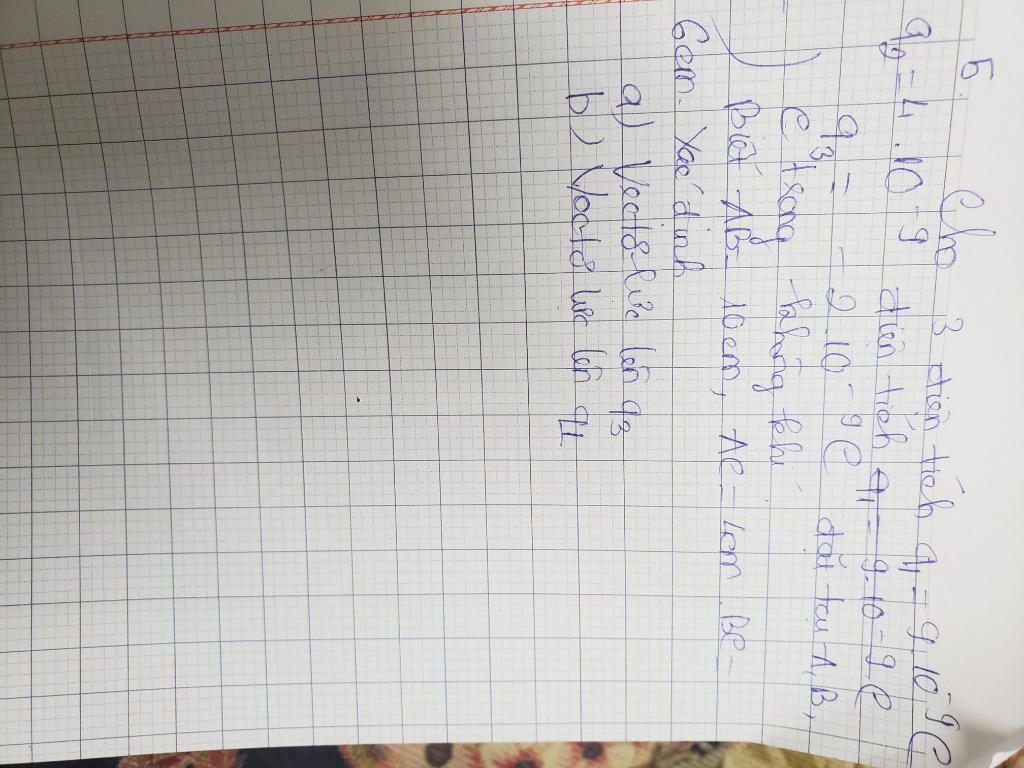 5. Cho 3 điện tích q1 = 9.10-9C
q2 = 4.10-9 điện tích q1 = 9.10-9C
q3 = -2.10-9C đặt tại A, B,
C trong không khí
Biết AB = 10cm, AC = 4cm BC =
6cm. Xác định
a) Vectơ lực lên q3
b) Vectơ lực lên q1